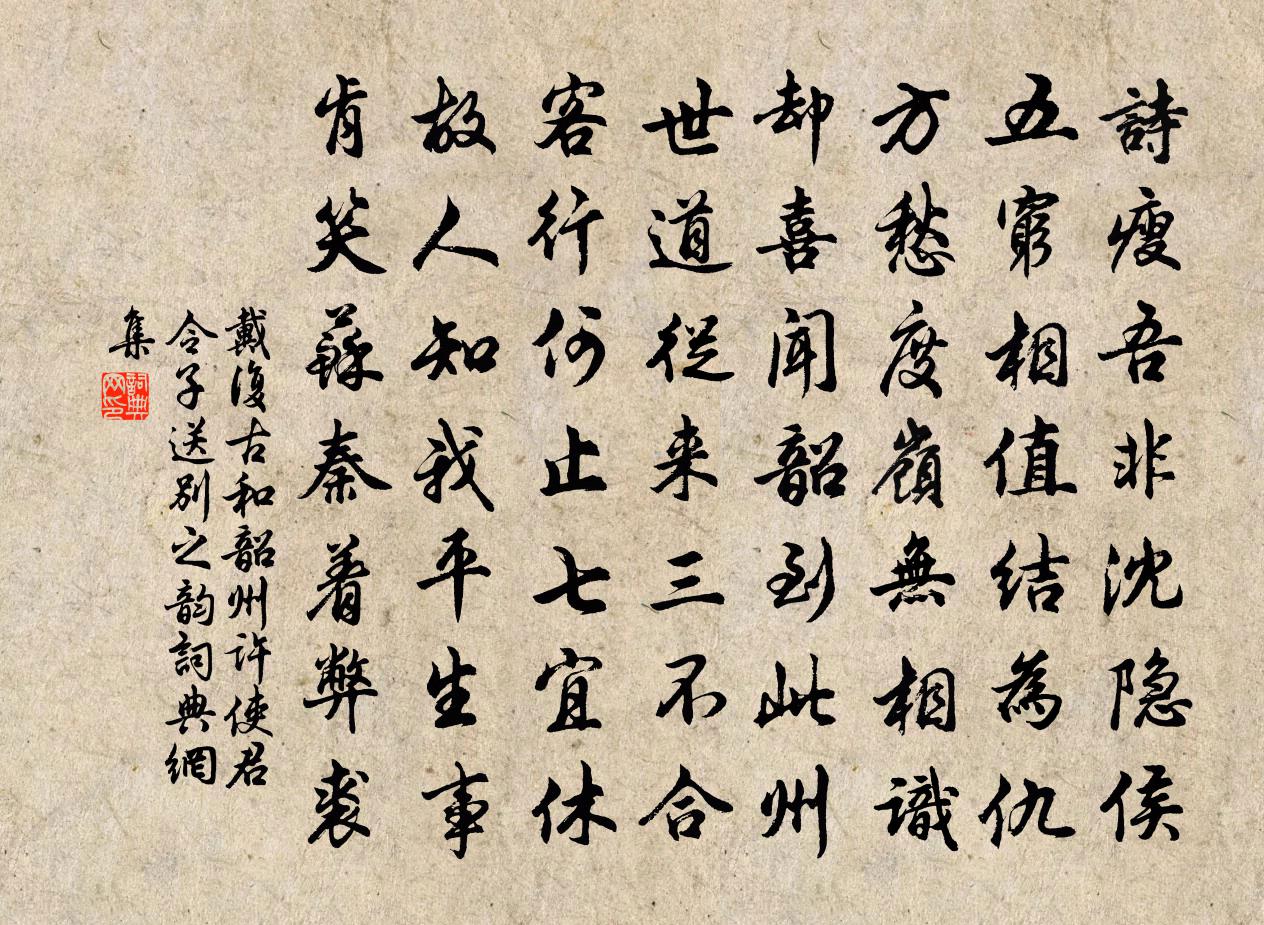 詩瘦吾非沈隐侯
五窮相值結為仇
方愁度嶺無相識
却喜聞韶到此州
世道從来三不合
客行何止七宜休
故人知我平生事
肯笑蘇秦着弊裘
戴復古和韶州許使君
令子送别之韵詞典網
集
詞典网印